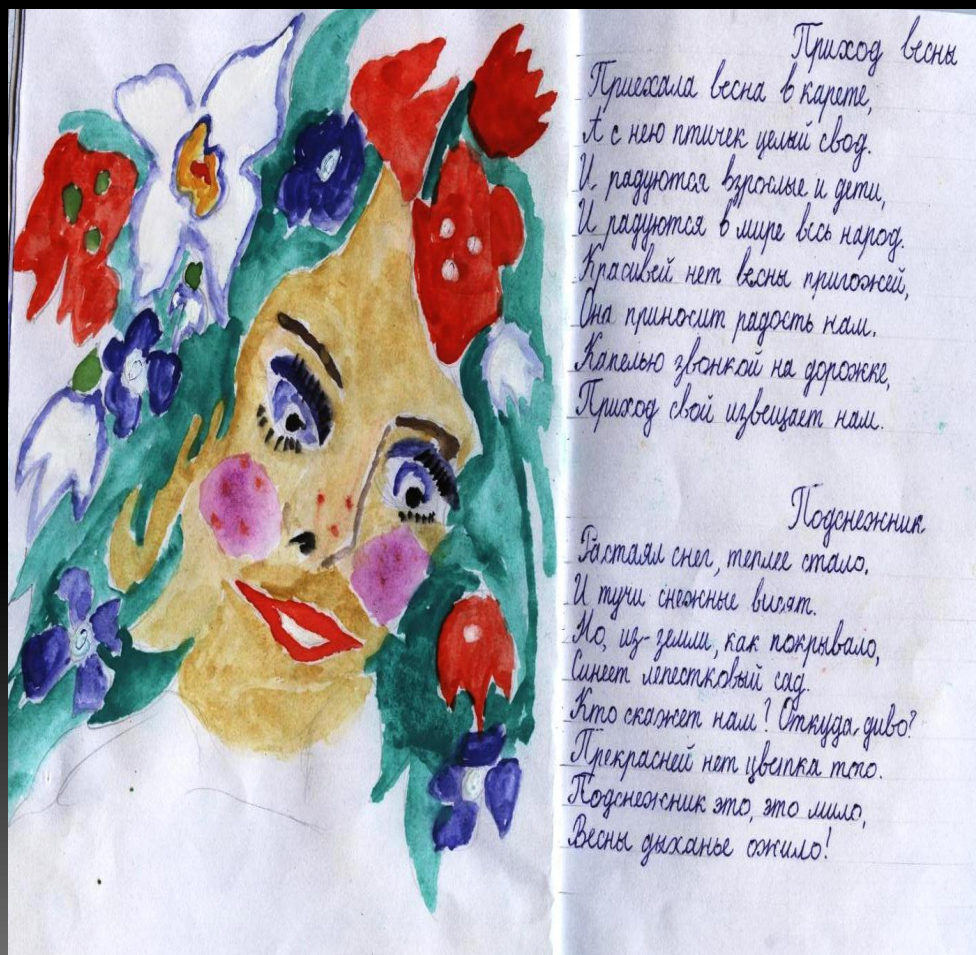 Приход весны
Приехала весна в карете,
А с нею птичек целый свод.
И радуются взрослые и дети,
И радуются в мире весь народ.
Красивей нет весны пригожей,
Она приносит радость нам.
Капелью звонкой на дорожке,
Приход свой извещает нам.
Подснежник
Растаял снег, теплее стало,
И тучи снежные висят.
Но, из-земли, как покрывало,
Синеет лепестковый сад.
Кто скажет нам? Откуда, диво?
Прекрасней нет цветка того.
Подснежник это, это мило,
Весны дыханье ожило!